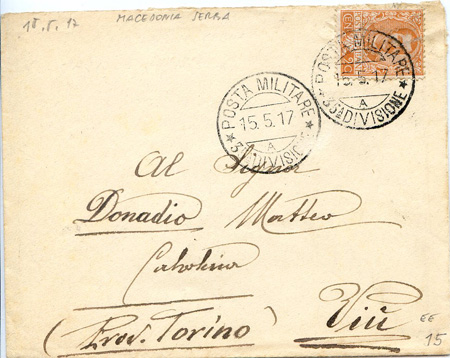 15.5.17 MACEDONIA SERBA
POSTA MILITARE
15.5.17
A
35ª DIVISIONE
POSTA MILITARE
15.5.17
A
35ª DIVISIONE
Al Signor
Donadio Matteo
Viù
(Prov. Torino)
EE
15